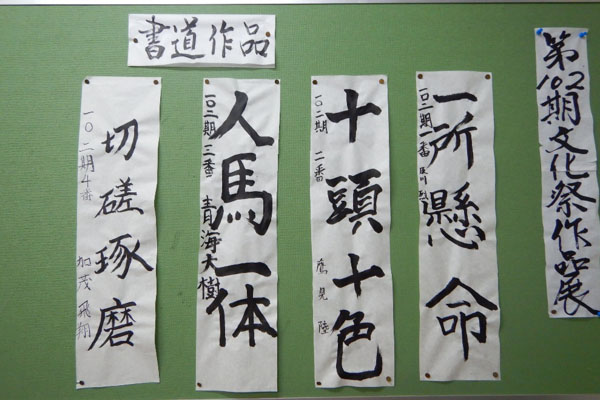 書道作品
第102期文化祭作品展
一所懸命
一〇二期一番
十頭十色
一〇二期 二番
鷹見 陸
人馬一体
一〇二期 三番 青海大樹
切磋琢磨
一〇二期4番 加茂 飛翔